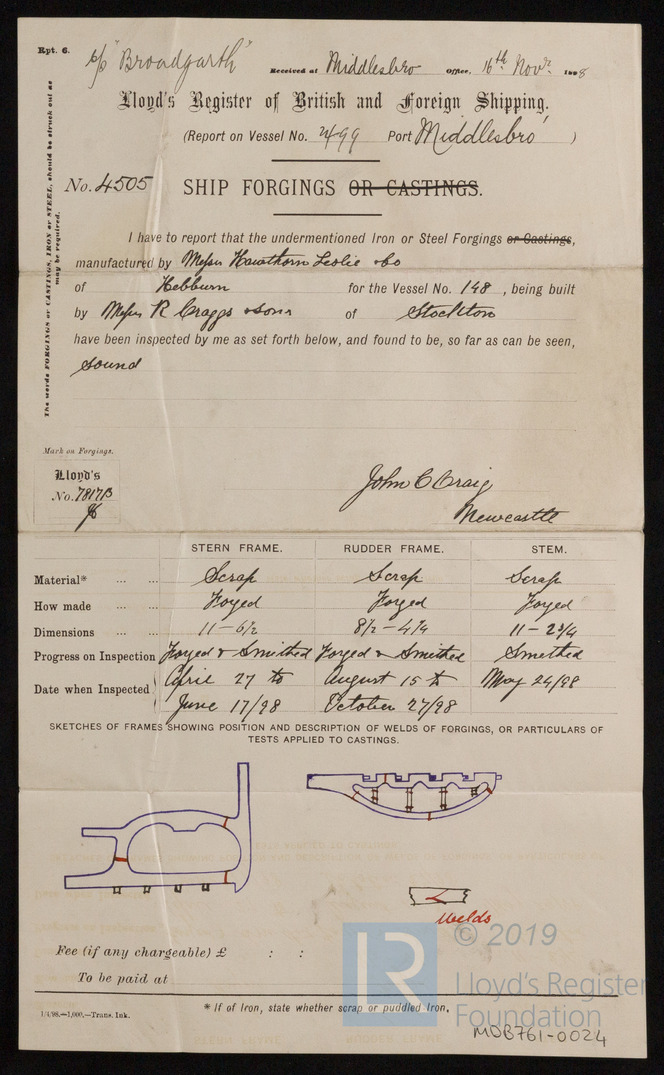 Rpt. 6.
s/s "Broadgarth"
Received at Middlesbro Office, 16th Novr. 1898
Lloyd's Register of British and Foreign Shipping.
(Report on Vessel No. 2499 Port Middlesbro')
No. 4505 SHIP FORGINGS OR CASTINGS.
The words FORGINGS or CASTINGS, IRON or STEEL, should be struck out as
may be required.
I have to report that the undermentioned Iron or Steel Forgings or Castings,
manufactured by Messrs Hawthorn Leslie & Co
of Hebburn for the Vessel No. 148, being built
by Messrs R Craggs & Sons of Stockton
have been inspected by me as set forth below, and found to be, so far as can be seen,
sound
Mark on Forgings.
Lloyd's
No. 7817B
John C Craig
Newcastle
STERN FRAME. RUDDER FRAME. STEM.
Material* ... ... Scrap Scrap Scrap
How made ... ... Forged Forged Forged
Dimensions ... ... 11 - 6½ 8½ - 4¼ 11 - 2¾
Progress on Inspection Forged & Smithed Forged & Smithed Smithed
Date when Inspected April 27 to August 15 to May 24/98
June 17/98 October 27/98
SKETCHES OF FRAMES SHOWING POSITION AND DESCRIPTION OF WELDS OF FORGINGS, OR PARTICULARS OF
TESTS APPLIED TO CASTINGS.
Welds
Fee (if any chargeable) £ : :
To be paid at
* If of Iron, state whether scrap or puddled Iron.
1/4/98.—1,000.—Trans. Ink.
© 2019
LR
Lloyd's Register
Foundation
MDB761-0024